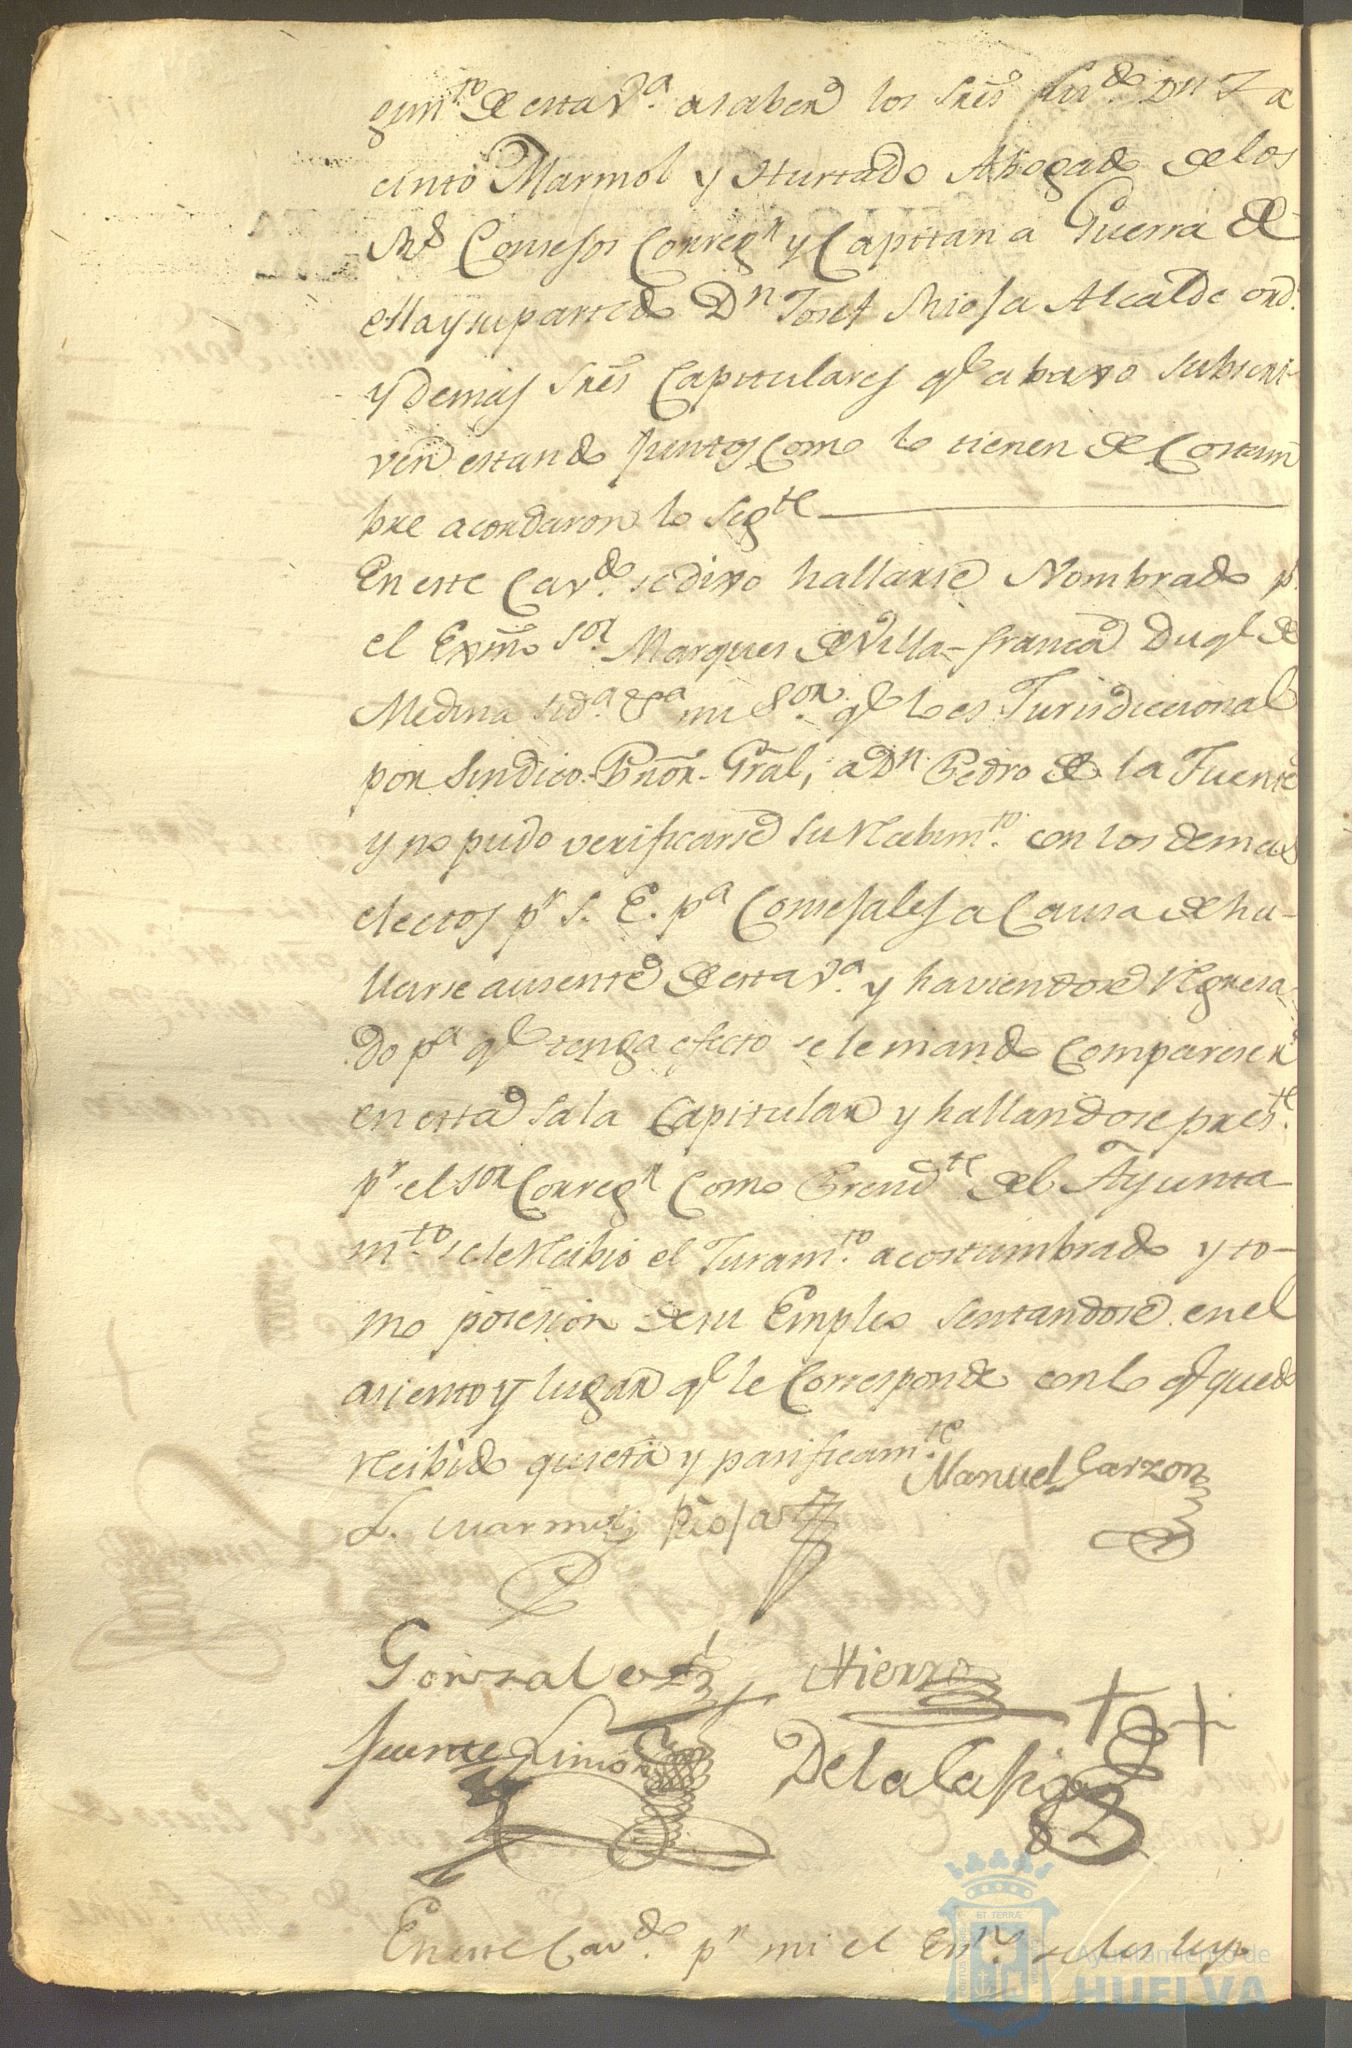 gim.to de esta V.a a saber los Sres Lic.do Dn Ja
cinto Marmol y Hurtado Abogado de los
Rs Consejos Correg.r y Capitan a Guerra de
ella y su partido Dn Josef Rioja Alcalde ord.
y demas Sres Capitulares q.e abaxo subscri-
ven estando juntos como lo tienen de costum
bre acordaron lo sig.te
En este Cav.do se dixo hallarse Nombrado p.r
el Exmo Sor Marques de Villa-franca Duq.e de
Medina Sid.a mi S.or q.e lo es Jurisdiccional
por Sindico Pror Gral, a Dn Pedro de la Fuente
y no pudo verificarse su Recibim.to con los demas
electos p.r S. E. p.a Consejales a causa de ha-
llarse ausente de esta V.a y haviendose Regresa-
do p.a q.e tenga efecto se le mando comparecer
en esta Sala Capitular y hallandose pres.te
p.r el Sor Correg.r como Presid.te del Ayunta
m.to se le Recibio el Juram.to acostumbrado y to-
mo posesion de su Empleo sentandose en el
asiento y lugar q.e le corresponde con lo q.e quedo
Recibido quieta y pacificam.te
Manuel Garzon
L. Marmol Rioja
Gonzalez Hierro
Fuente Limon De la Casa
En este Cav.do p.r mi el Esn.o se les leyo
ET TERRÆ
Ayuntamiento de
HUELVA